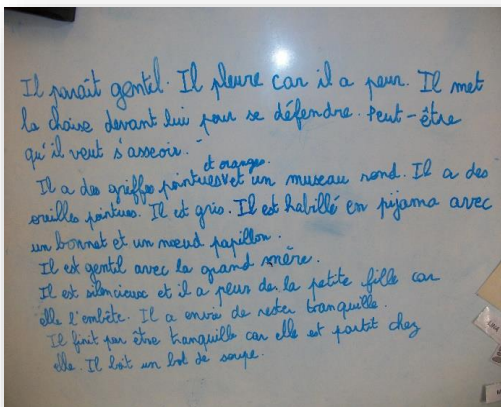 Il paraît gentil. Il pleure car il a peur. Il met
la chaise devant lui pour se défendre. Peut-être
qu'il veut s'asseoir.
et oranges.
Il a des griffes pointues et un museau rond. Il a des
oreilles pointues. Il est gris. Il est habillé en pijama avec
un bonnet et un nœud papillon.
Il est gentil avec la grand mère.
Il est silencieux et il a peur de la petite fille car
elle l'embête. Il a envie de rester tranquille.
Il finit par être tranquille car elle est partit chez
elle. Il boit un bol de soupe.